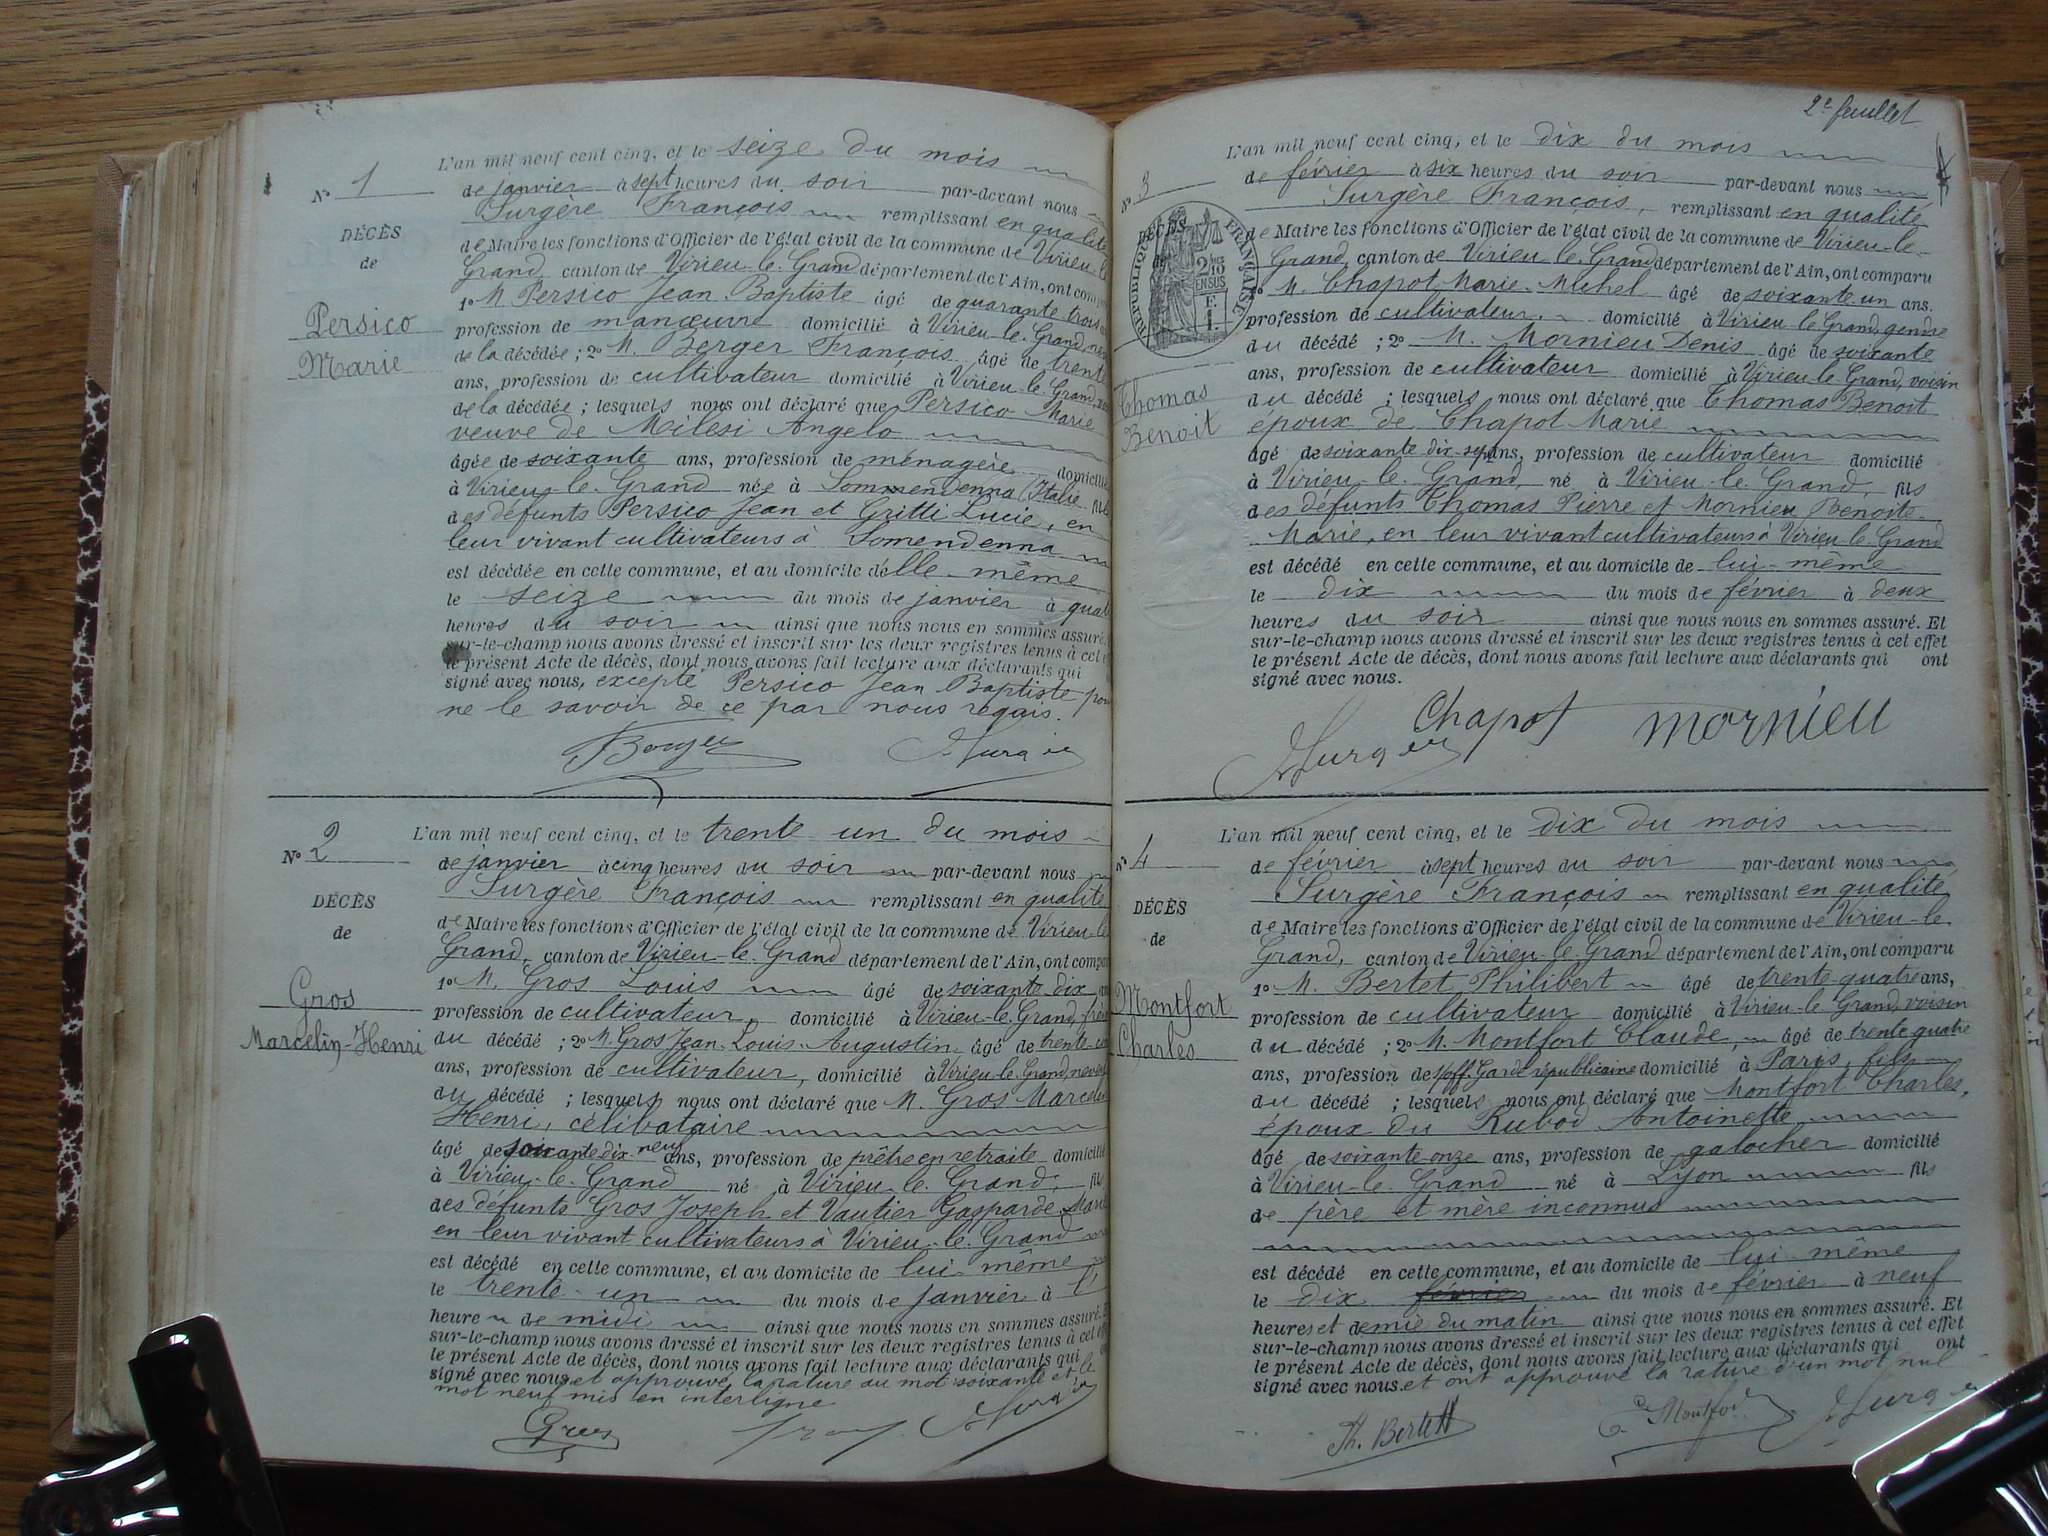 N° 1
DÉCÈS
de
Persico
Marie
L'an mil neuf cent cinq, et le seize du mois
de janvier à sept heures du soir par-devant nous
Surgère François remplissant en qualité
de Maire les fonctions d'Officier de l'état civil de la commune de Virieu-le
Grand canton de Virieu-le-Grand département de l'Ain, ont comparu
1° M Persico Jean-Baptiste âgé de quarante trois
profession de manœuvre domicilié à Virieu-le-Grand,
de la décédée ; 2° M. Berger François âgé de trente
ans, profession de cultivateur domicilié à Virieu-le-Grand,
de la décédée ; lesquels nous ont déclaré que Persico Marie
veuve de Milesi Angelo
âgée de soixante ans, profession de ménagère domicilié
à Virieu-le-Grand née à Sommendenna (Italie
des défunts Persico Jean et Gritti Lucie, en
leur vivant cultivateurs à Somendenna
est décédée en cette commune, et au domicile delle-même
le seize du mois de janvier à quat
heures du soir ainsi que nous nous en sommes assuré.
sur-le-champ nous avons dressé et inscrit sur les deux registres tenus à cet
le présent Acte de décès, dont nous avons fait lecture aux déclarants qui
signé avec nous, excepté Persico Jean Baptiste pour
ne le savoir de ce par nous requis.
N° 2
DÉCÈS
de
Gros
Marcelin-Henri
L'an mil neuf cent cinq, et le trente-un du mois
de janvier à cinq heures du soir par-devant nous
Surgère François remplissant en qualité
de Maire les fonctions d'Officier de l'état civil de la commune de Virieu-le
Grand, canton de Virieu-le-Grand département de l'Ain, ont compar
1° M. Gros Louis âgé de soixante-dix
profession de cultivateur, domicilié à Virieu-le-Grand, frè
du décédé ; 2° M. Gros Jean-Louis-Augustin, âgé de trente-
ans, profession de cultivateur, domicilié à Virieu-le-Grand, neveu
du décédé ; lesquels nous ont déclaré que M. Gros Marcelin
Henri, célibataire
âgé de soixante dix-neuf ans, profession de prêtre en retraite domicilié
à Virieu-le-Grand né à Virieu-le-Grand, fils
des défunts Gros Joseph et Vautier Gasparde Mari
en leur vivant cultivateurs à Virieu-le-Grand
est décédé en cette commune, et au domicile de lui-même
le trente-un du mois de janvier à l'
heure de midi ainsi que nous nous en sommes assuré.
sur-le-champ nous avons dressé et inscrit sur les deux registres tenus à cet
le présent Acte de décès, dont nous avons fait lecture aux déclarants qui
signé avec nous, et approuvé la rature du mot soixante et le
mot neuf mis en interligne
2e feuillet
N° 3
DÉCÈS
RÉPUBLIQUE FRANÇAISE
2/10 EN SUS
Thomas
Benoit
L'an mil neuf cent cinq, et le dix du mois
de février à six heures du soir par-devant nous
Surgère François, remplissant en qualité
de Maire les fonctions d'Officier de l'état civil de la commune de Virieu-le-
Grand, canton de Virieu le Grand département de l'Ain, ont comparu
1° M. Chapot Marie-Michel âgé de soixante-un ans.
profession de cultivateur, domicilié à Virieu le Grand, gendre
du décédé ; 2° M. Mornieu Denis âgé de soixante
ans, profession de cultivateur domicilié à Virieu-le-Grand, voisin
du décédé ; lesquels nous ont déclaré que Thomas Benoit
époux de Chapot Marie
âgé de soixante-dix-sept ans, profession de cultivateur domicilié
à Virieu-le-Grand, né à Virieu-le-Grand, fils
des défunts Thomas Pierre et Mornieu Benoite
Marie, en leur vivant cultivateurs à Virieu-le-Grand
est décédé en cette commune, et au domicile de lui-même
le dix du mois de février à deux
heures du soir ainsi que nous nous en sommes assuré. Et
sur-le-champ nous avons dressé et inscrit sur les deux registres tenus à cet effet
le présent Acte de décès, dont nous avons fait lecture aux déclarants qui ont
signé avec nous.
Chapot Mornieu
N° 4
DÉCÈS
de
Montfort
Charles
L'an mil neuf cent cinq, et le dix du mois
de février à sept heures du soir par-devant nous
Surgère François remplissant en qualité
de Maire les fonctions d'Officier de l'état civil de la commune de Virieu-le
Grand, canton de Virieu-le-Grand département de l'Ain, ont comparu
1° M. Bertet Philibert âgé de trente-quatre ans,
profession de cultivateur domicilié à Virieu-le-Grand, voisin
du décédé ; 2° M. Montfort Claude, âgé de trente quatre
ans, profession de s/off. Garde républicaine domicilié à Paris, fils
du décédé ; lesquels nous ont déclaré que Montfort Charles,
époux du Rubod Antoinette
âgé de soixante-onze ans, profession de galocher domicilié
à Virieu-le-Grand né à Lyon fils
de père et mère inconnus
est décédé en cette commune, et au domicile de lui-même
le dix février du mois de février à neuf
heures et demie du matin ainsi que nous nous en sommes assuré. Et
sur-le-champ nous avons dressé et inscrit sur les deux registres tenus à cet effet
le présent Acte de décès, dont nous avons fait lecture aux déclarants qui ont
signé avec nous et ont approuvé la rature d'un mot nul
Ph. Bertet